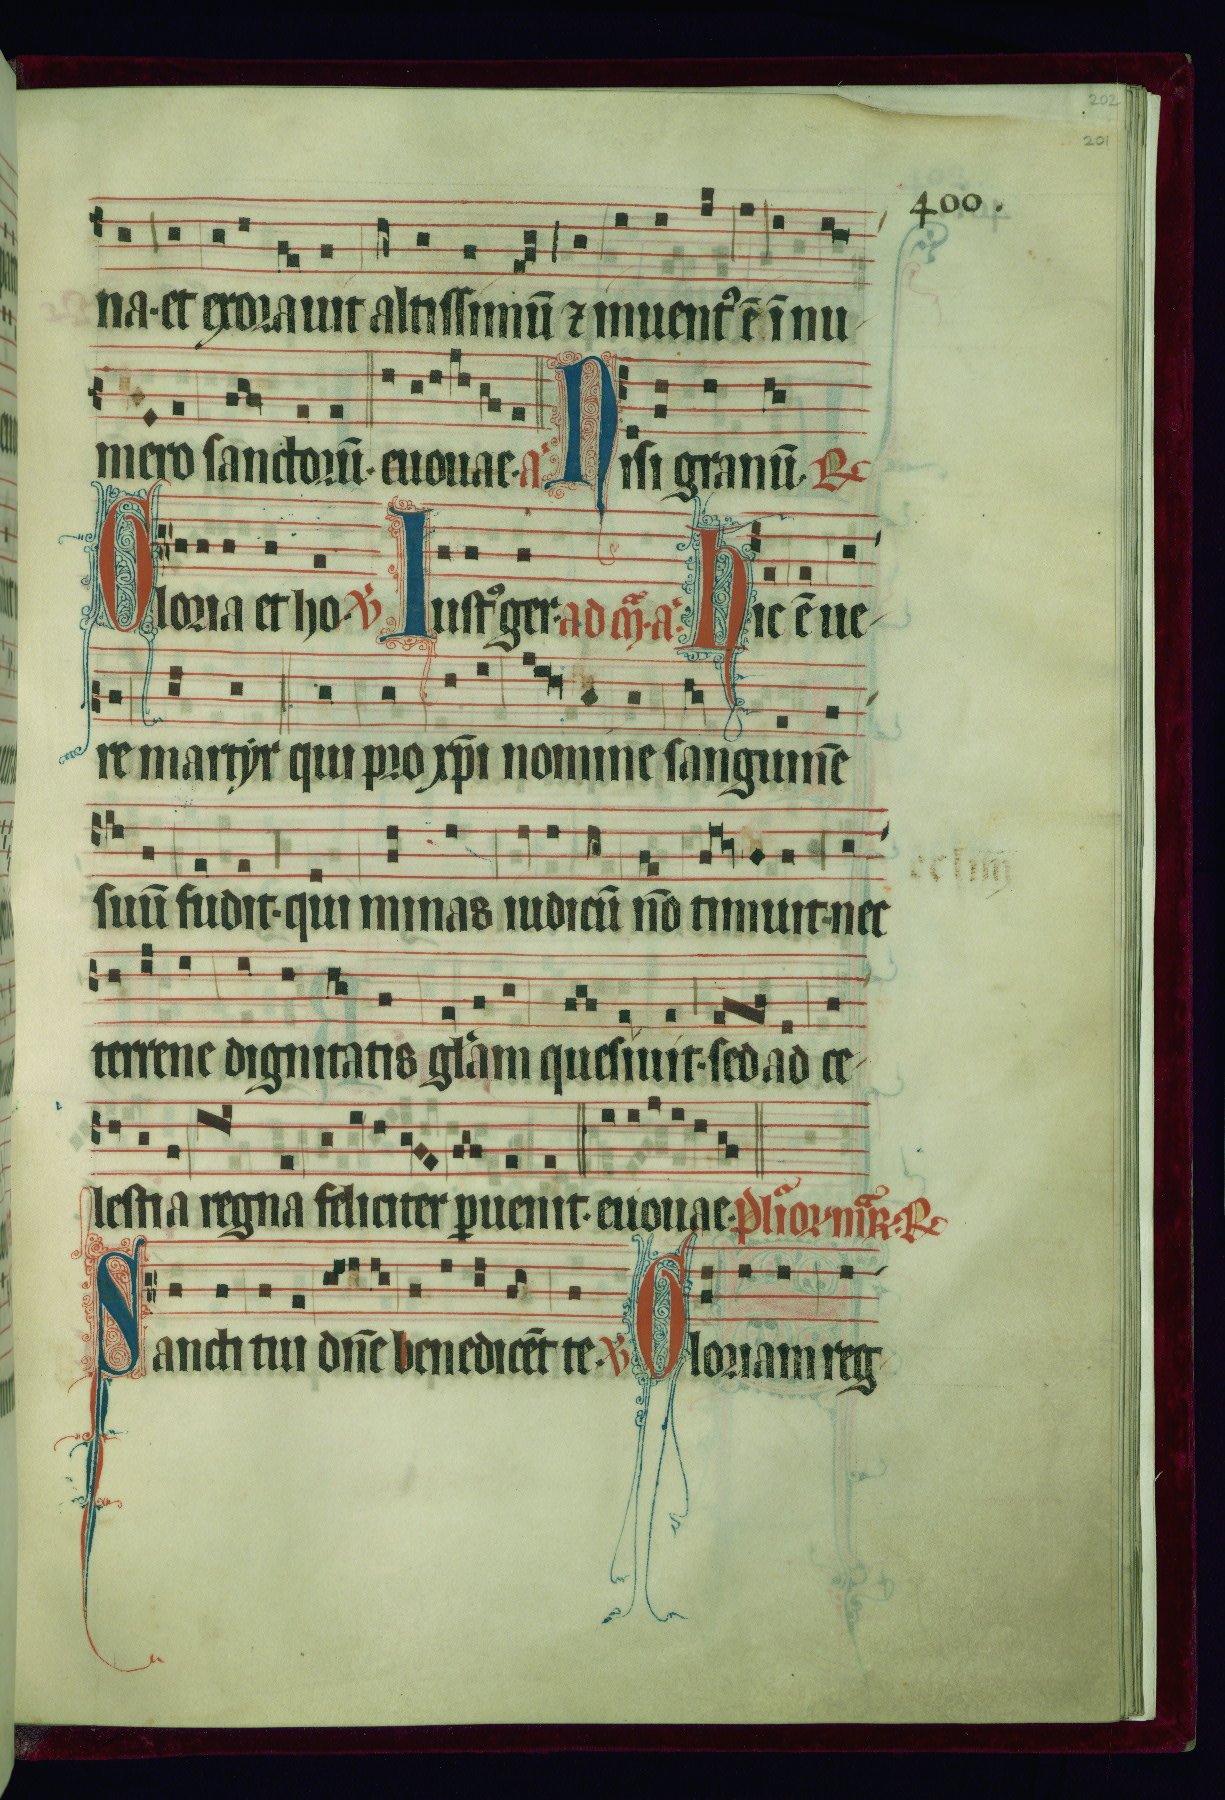 202
201
400.
na·et exorauit altissimū ⁊ inuent᷒ ē ī nu
mero sanctorū· euouae· a᷑ Nisi granū· ℟
Gloria et ho· ℣ Iust᷒ ger· ad m̄· a᷑ hic ē ue
re martyr qui pro xp̄i nomine sanguinē
suū fudit· qui minas iudicū nō timuit· nec
terrene dignitatis gl̄am quesiuit· sed ad ce
lestia regna feliciter ꝑuenit· euouae· pl̄ior· mr̄· ℟
Sancti tui dn̄e benedicēt te· ℣ Gloriam reg